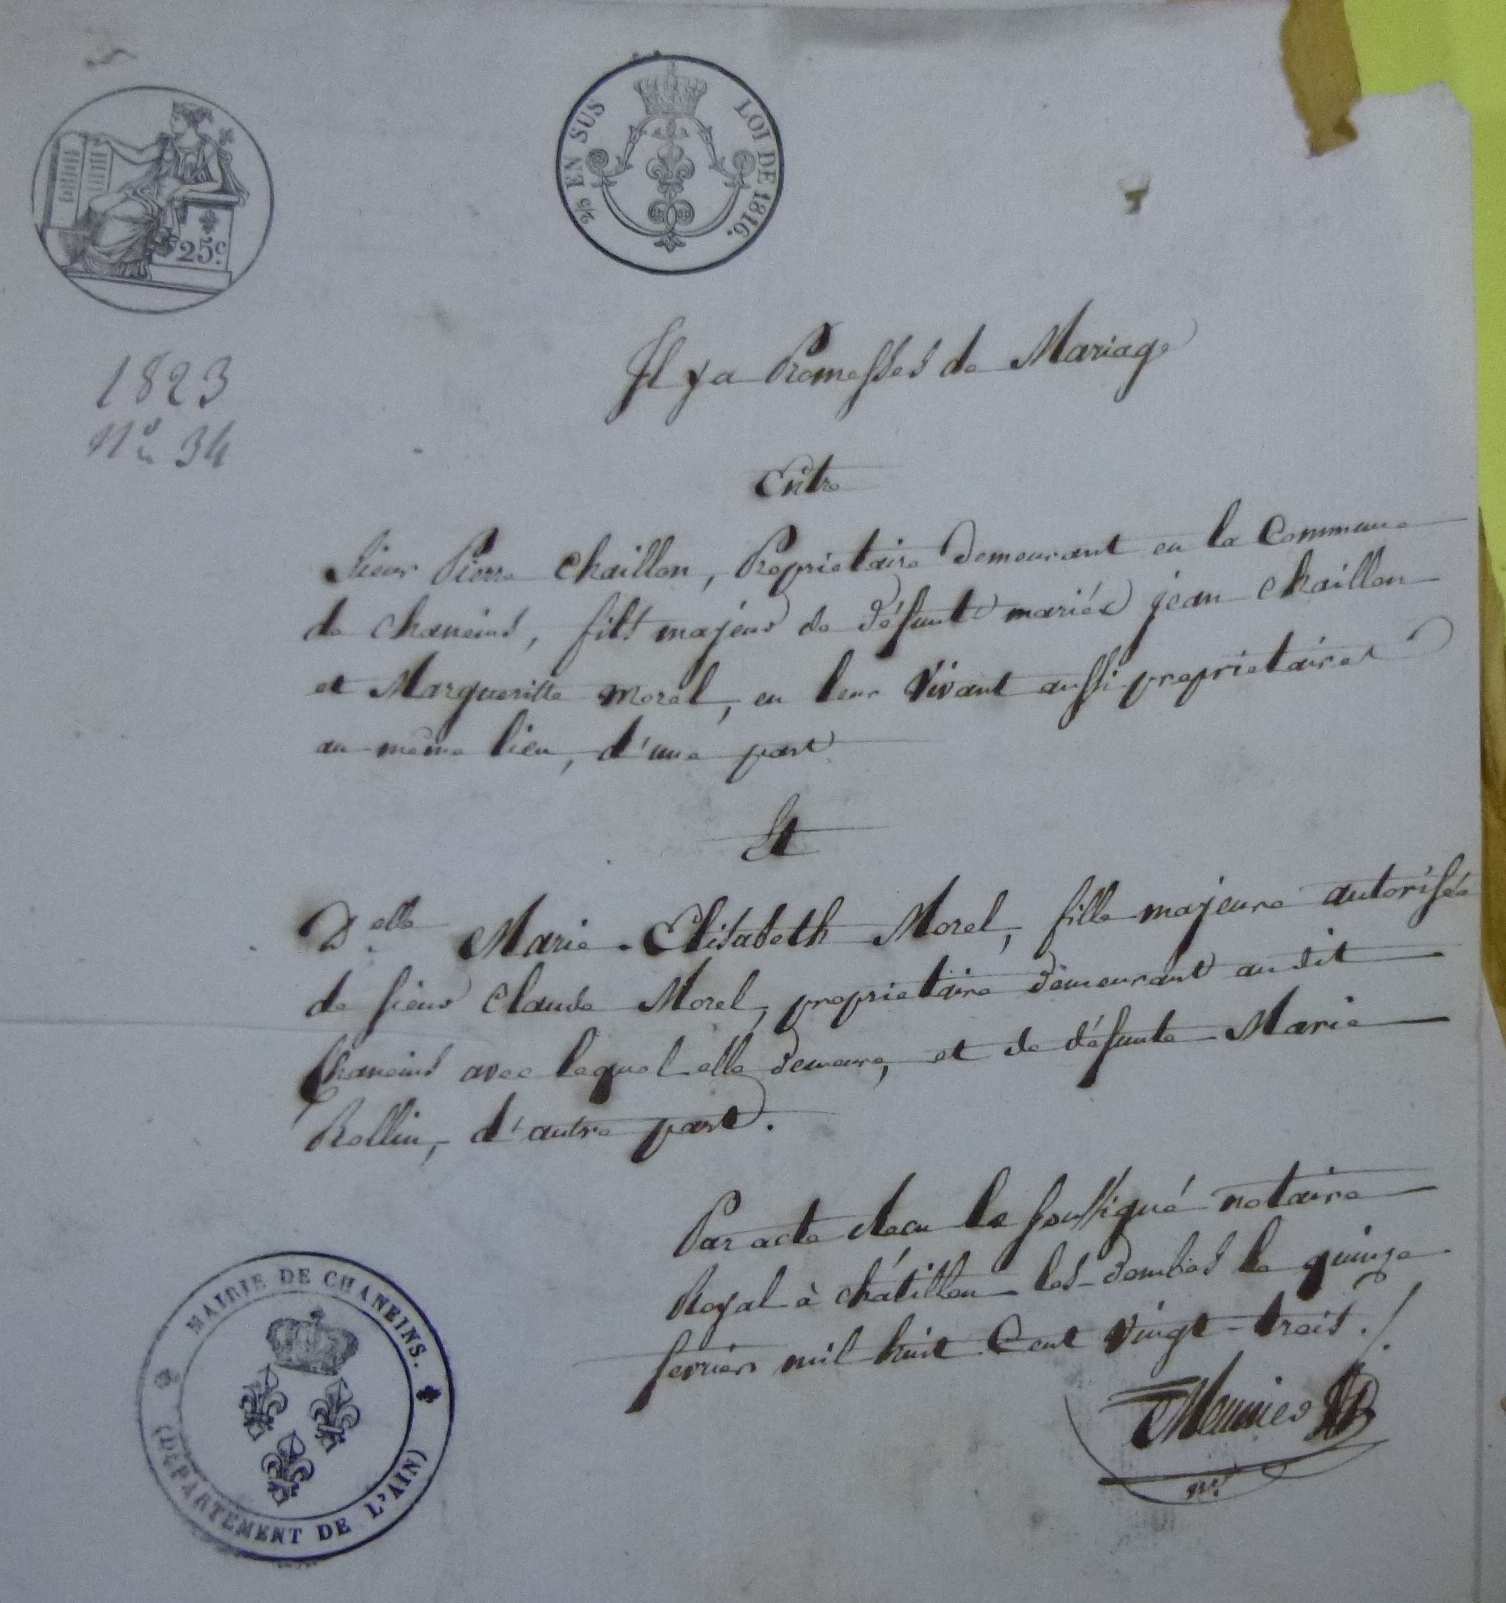 25c.
2/5 EN SUS LOI DE 1816.
1823
No. 34
Il y a Promesses de Mariage
Entre
Sieur Pierre Chaillon, Propriétaire Demeurant en la Commune
de Chaneins, fils majeur de défunts mariés jean Chaillon
et Margueritte Morel, en leur Vivant aussi propriétaires
au même lieu, d'une part
Et
Delle Marie-Elisabeth Morel, fille majeure autorisée
de sieur Claude Morel, propriétaire demeurant audit
Chaneins avec lequel elle demeure, et de défunte Marie
Rollin, d'autre part.
Par acte le soussigné notaire
Royal à Châtillon les-Dombes le quinze
fevrier mil huit Cent Vingt-trois./.
Meunier
MAIRIE DE CHANEINS.
(DEPARTEMENT DE L'AIN)